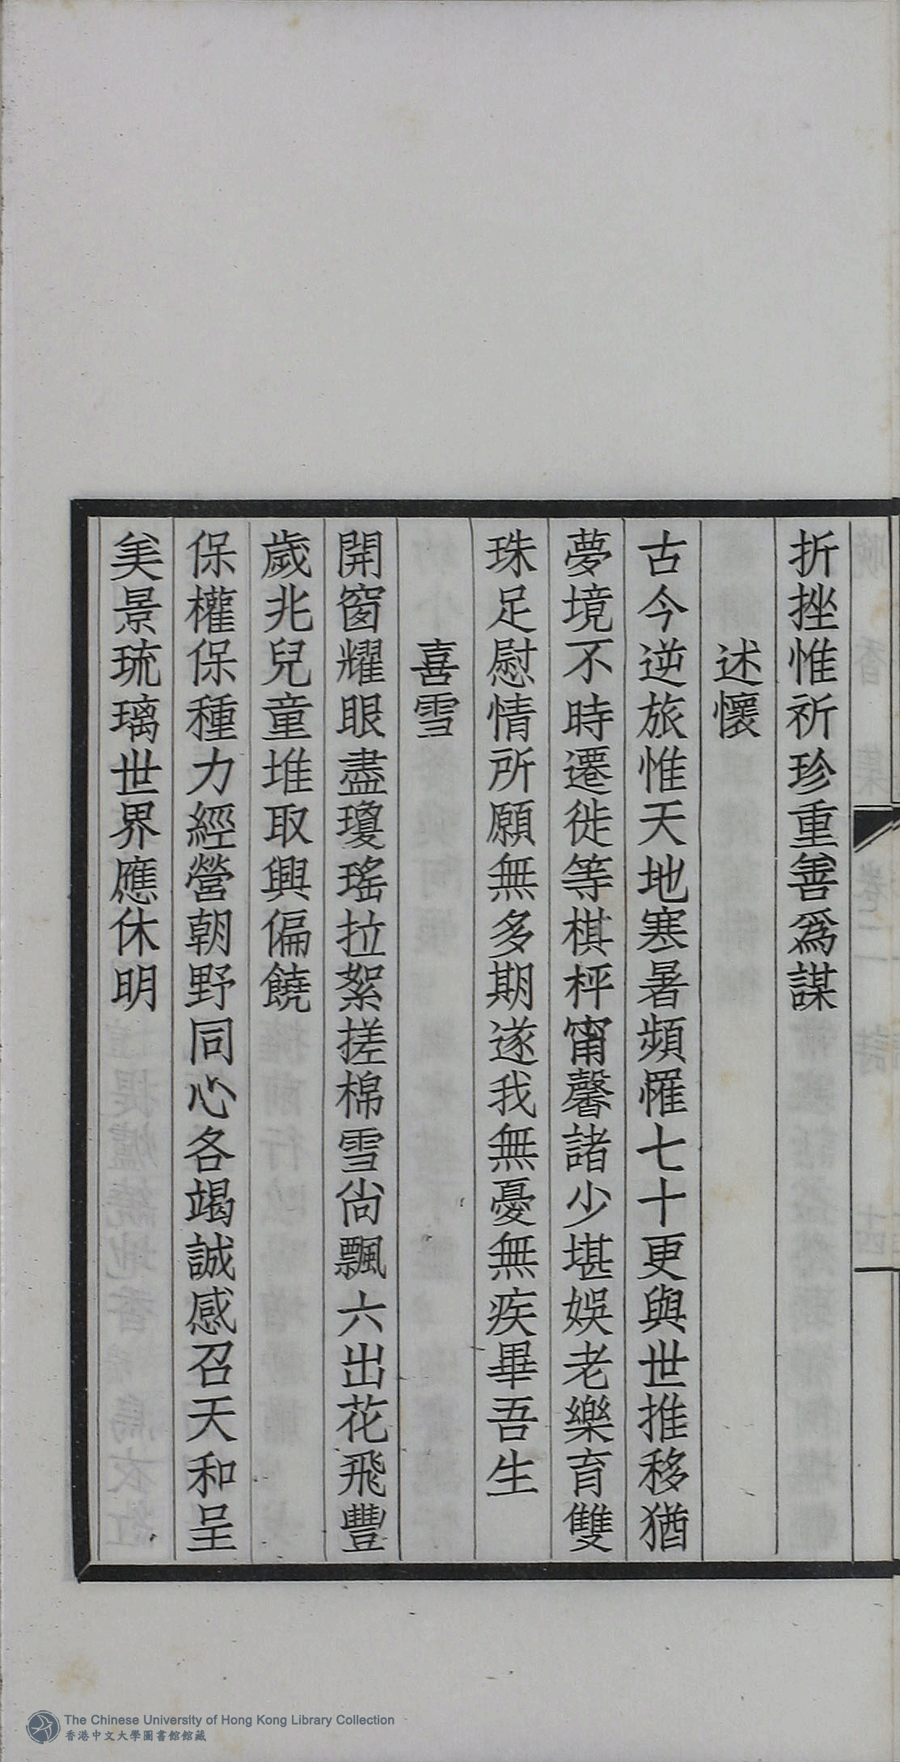 折挫惟祈珍重善為謀
述懷
古今逆旅惟天地寒暑頻罹七十更與世推移猶
夢境不時遷徙等棋枰甯馨諸少堪娛老樂育雙
珠足慰情所願無多期遂我無憂無疾畢吾生
喜雪
開窗耀眼盡瓊瑤拉絮搓棉雪尚飄六出花飛豐
歲兆兒童堆取興偏饒
保權保種力經營朝野同心各竭誠感召天和呈
矣景琉璃世界應休明
The Chinese University of Hong Kong Library Collection
香港中文大學圖書館館藏